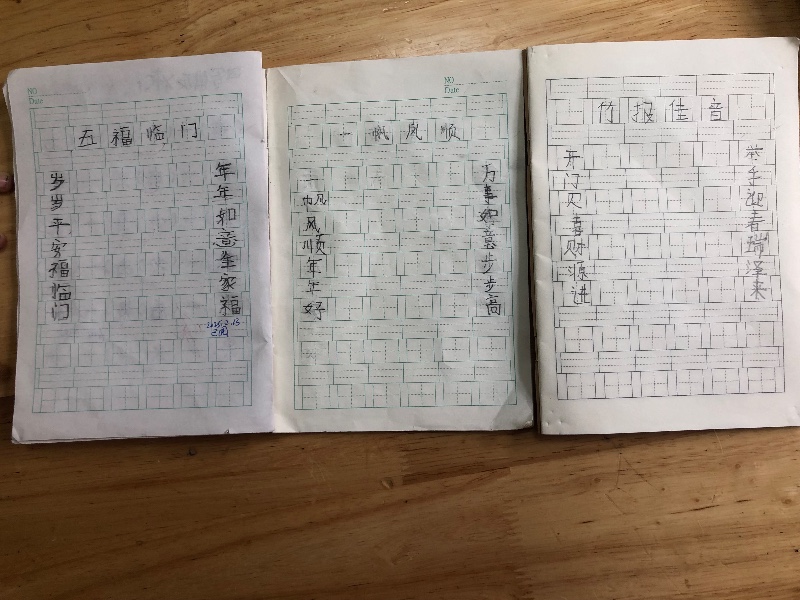 NO
Date
五福临门
年年如意全家福
岁岁平安福临门
已阅
NO
Date
一帆风顺
万事如意步步高
一帆风顺年年好
竹报佳音
举手迎春瑞泽来
开门见喜财源进